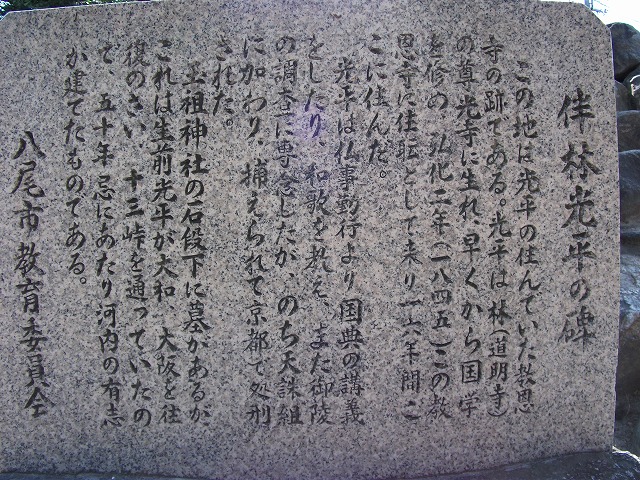 伴林光平の碑
この地は光平の住んでいた教恩
寺の跡である。光平は林(道明寺)
の尊光寺に生れ、早くから国学
を修め、弘化二年(一八四五)この教
恩寺に住職として来り一六年間こ
こに住んだ。
光平は仏事勤行より国典の講義
をしたり、和歌を教え、また御陵
の調査に専念したが、のち天誅組
に加わり、捕えられて京都で処刑
された。
玉祖神社の石段下に墓があるが
これは生前光平が大和、大阪を往
復のさい、十三峠を通っていたの
で、五十年忌にあたり河内の有志
が建てたものである。
八尾市教育委員会